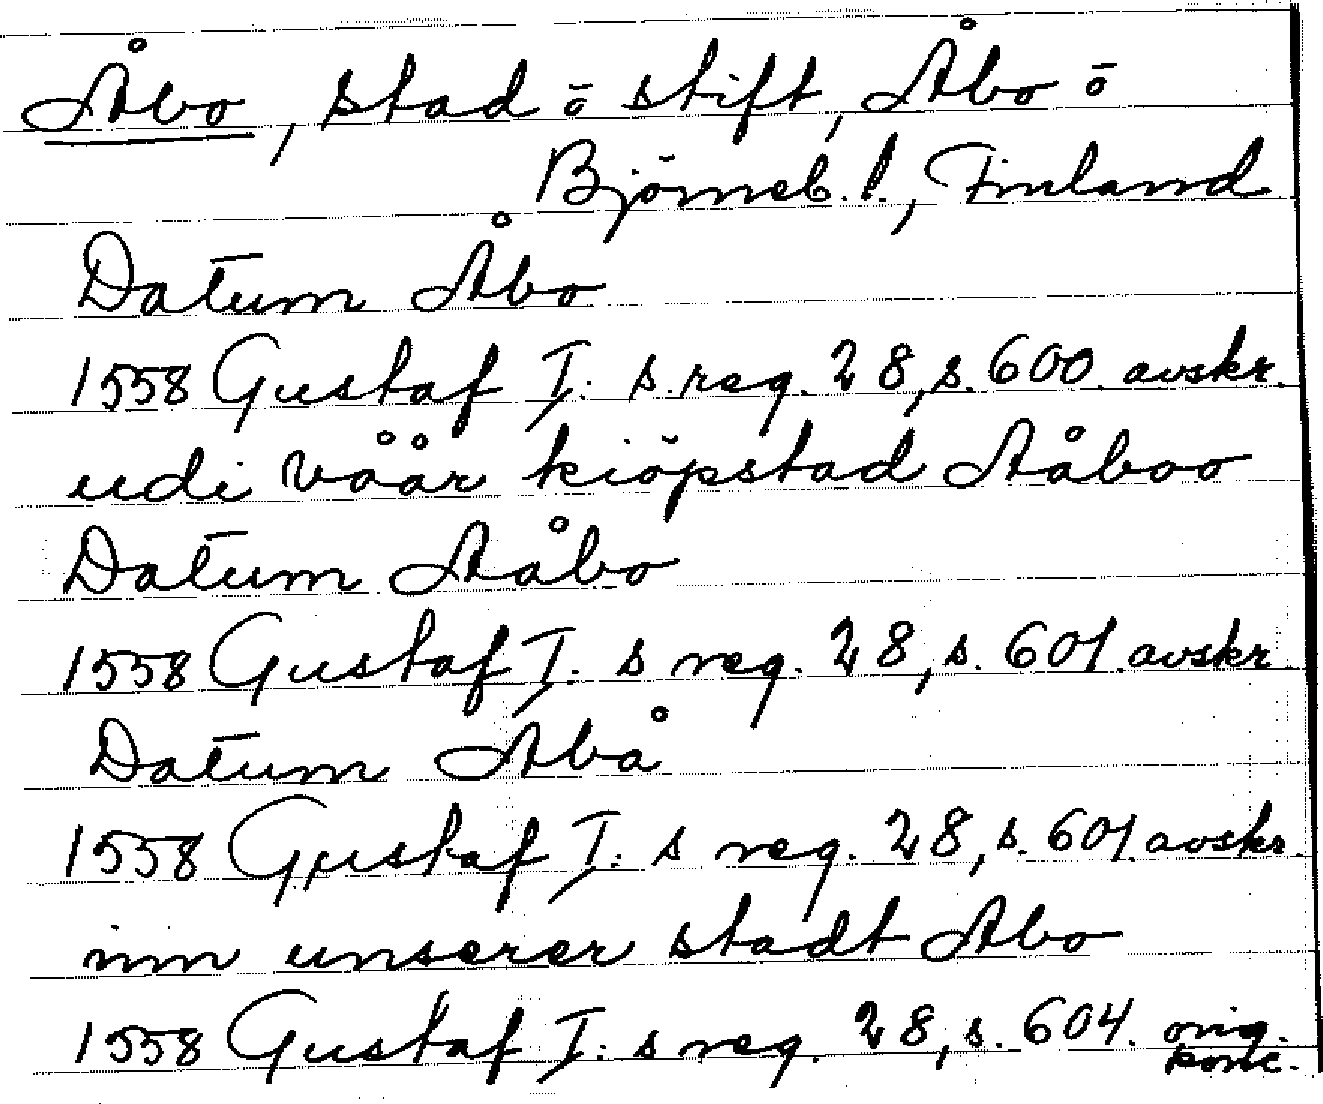 Åbo, stad ō stift, Åbo ō
Björneb. l., Finland
Datum Åbo
1558 Gustaf I: s. reg. 28, s. 600. avskr.
udi våår kiöpstad Aåboo
Datum Aåbo
1558 Gustaf I: s reg. 28, s. 601. avskr.
Datum Abå
1558 Gustaf I: s reg. 28, s. 601. avskr.
inn unserer stadt Abo
1558 Gustaf I: s reg. 28, s. 604. orig.
konc.